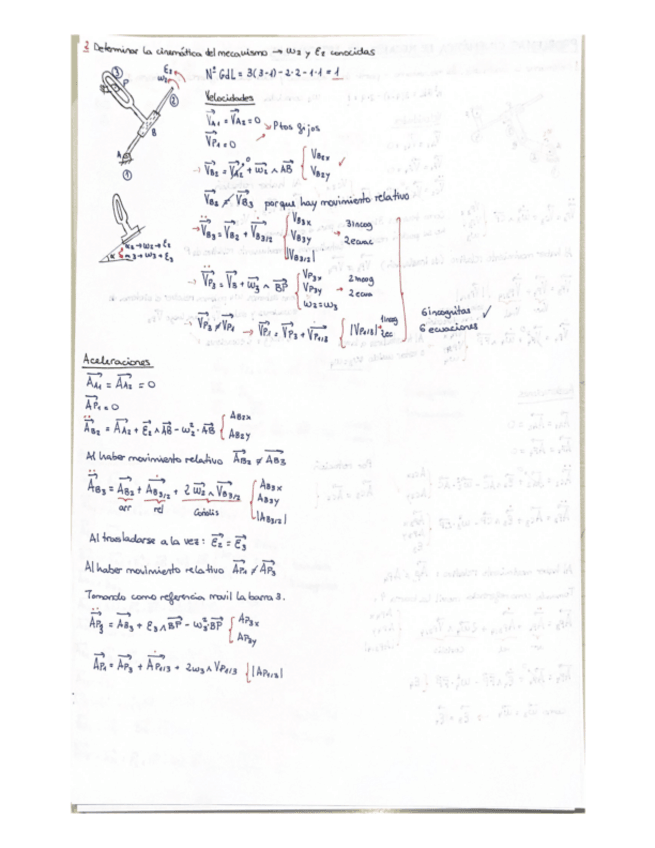 3 Determinar la cinemática del mecanismo → ω2 y ε2 conocidas
Nº GdL = 3(3-1) - 2·2 - 1·1 = 1
3
P
ε2
ω2
2
B
A
1
Velocidades
VA1 = VA2 = 0
VP1 = 0
→ Ptos fijos
→ VB2 = VA2 + ω2 ∧ AB { VB2x ✓
VB2y
VB2 ≠ VB3 porque hay movimiento relativo
→ VB3 = VB2 + VB3/2 { VB3x
VB3y
|VB3/2|
→ 3incog
2ecuac
→ VP3 = VB + ω3 ∧ BP { VP3x
VP3y
ω2=ω3
2incog
→ 2ecua
→ VP3 ≠ VP1 → VP1 = VP3 + VP1/3 { |VP1/3| 1incog
2ec
6 incognitas ✓
6 ecuaciones
Aceleraciones
AA1 = AA2 = 0
AP1 = 0
AB2 = AA2 + ε2 ∧ AB - ω2² · AB { AB2x
AB2y
Al haber movimiento relativo AB2 ≠ AB3
AB3 = AB2 + AB3/2 + 2 ω2 ∧ VB3/2 { AB3x
AB3y
|AB3/2|
arr rel Coriolis
Al trasladarse a la vez: ε2 = ε3
Al haber movimiento relativo AP1 ≠ AP3
Tomando como referencia movil la barra 3.
AP3 = AB3 + ε3 ∧ BP - ω3² · BP { AP3x
AP3y
AP1 = AP3 + AP1/3 + 2ω3 ∧ VP1/3 { |AP1/3|